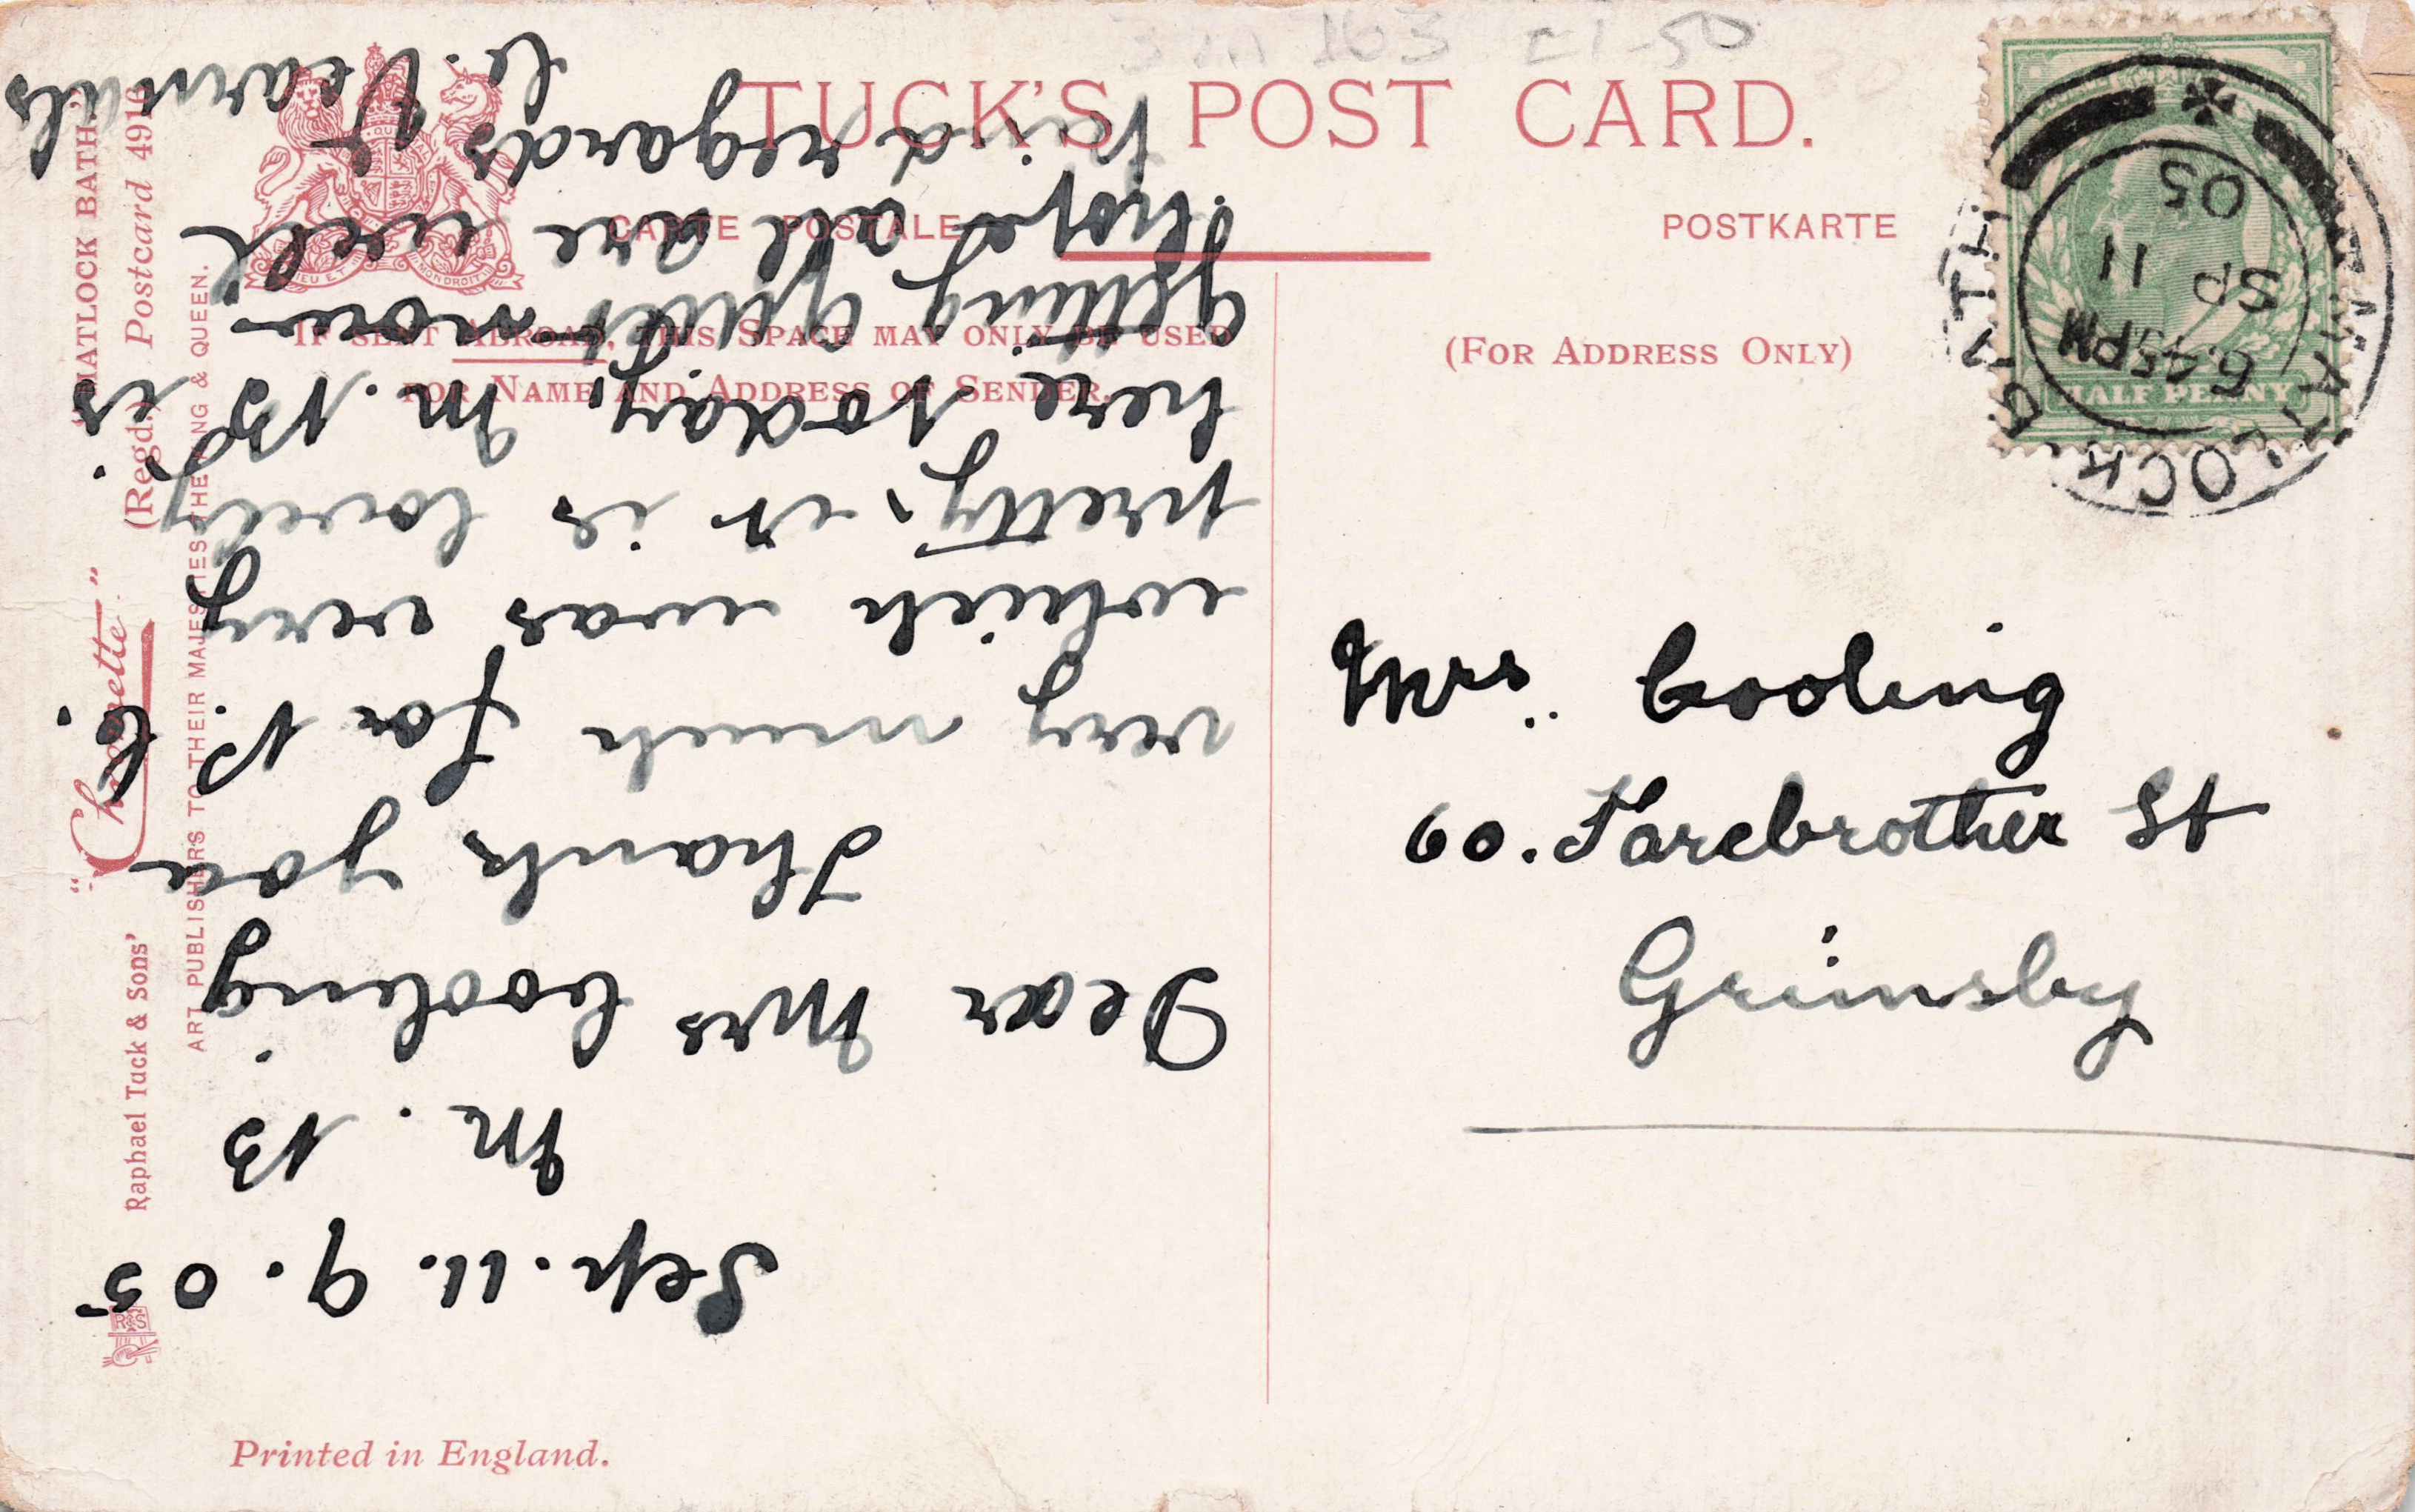 TUCK'S POST CARD.
CARTE POSTALE
POSTKARTE
IF SENT ABROAD, THIS SPACE MAY ONLY BE USED
FOR NAME AND ADDRESS OF SENDER.
(FOR ADDRESS ONLY)
HALF PENNY
MATLOCK BATH
6.45PM
SP 11
05
Mrs. Cooling
60. Farebrother St
Grimsby
Sep. 11. 9. 05
M. B
Dear Mrs Cooling.
Thank you
very much for P. C.
which was very
pretty, it is lovely
here today, M. B. is
getting quiet now
Hope all are well
Kind regards
"MATLOCK BATH."
Raphael Tuck & Sons' "Charmette" (Regd.) Postcard 4916
ART PUBLISHERS TO THEIR MAJESTIES THE KING & QUEEN.
Printed in England.